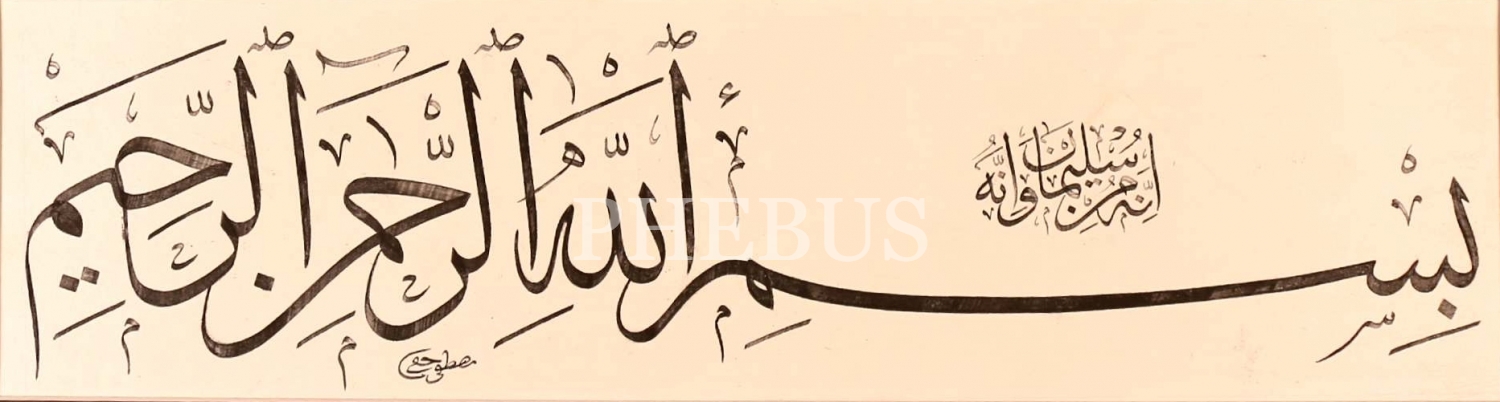 إنه من سليمان وإنه
بسم الله الرحمن الرحيم
مصطفى حقي
PHEBUS